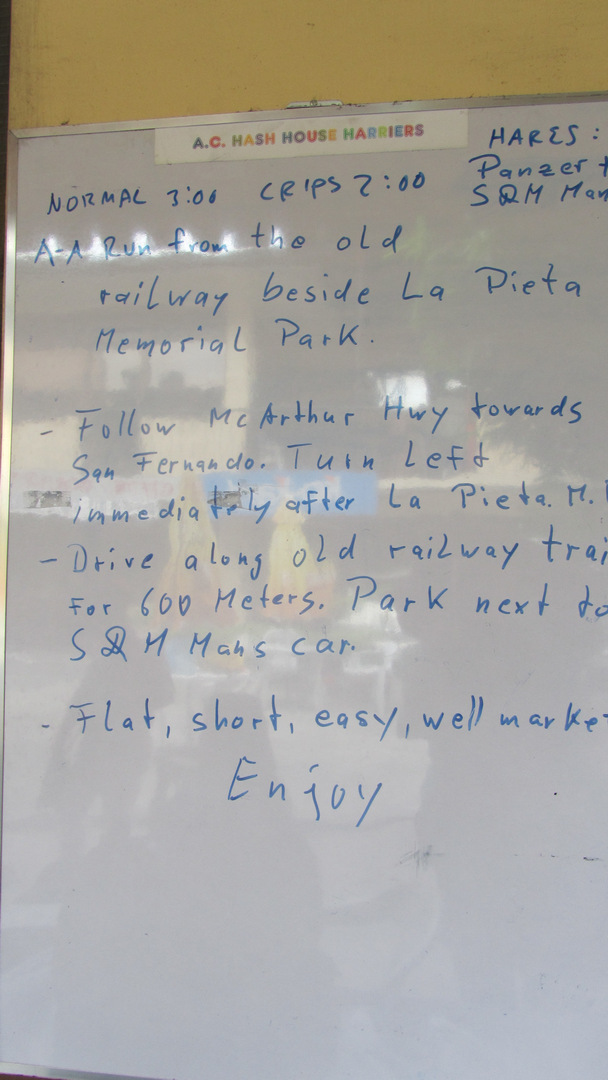 A.C. HASH HOUSE HARRIERS
HARES:
NORMAL 3:00 CRIPS 2:00 Panzer +
SQM Man
A-A Run from the old
railway beside La Pieta
Memorial Park.
- Follow McArthur Hwy towards
San Fernando. Turn Left
immediatelly after La Pieta. M.
- Drive along old railway trai
For 600 Meters. Park next to
SQM Mans car.
- Flat, short, easy, well marke
Enjoy